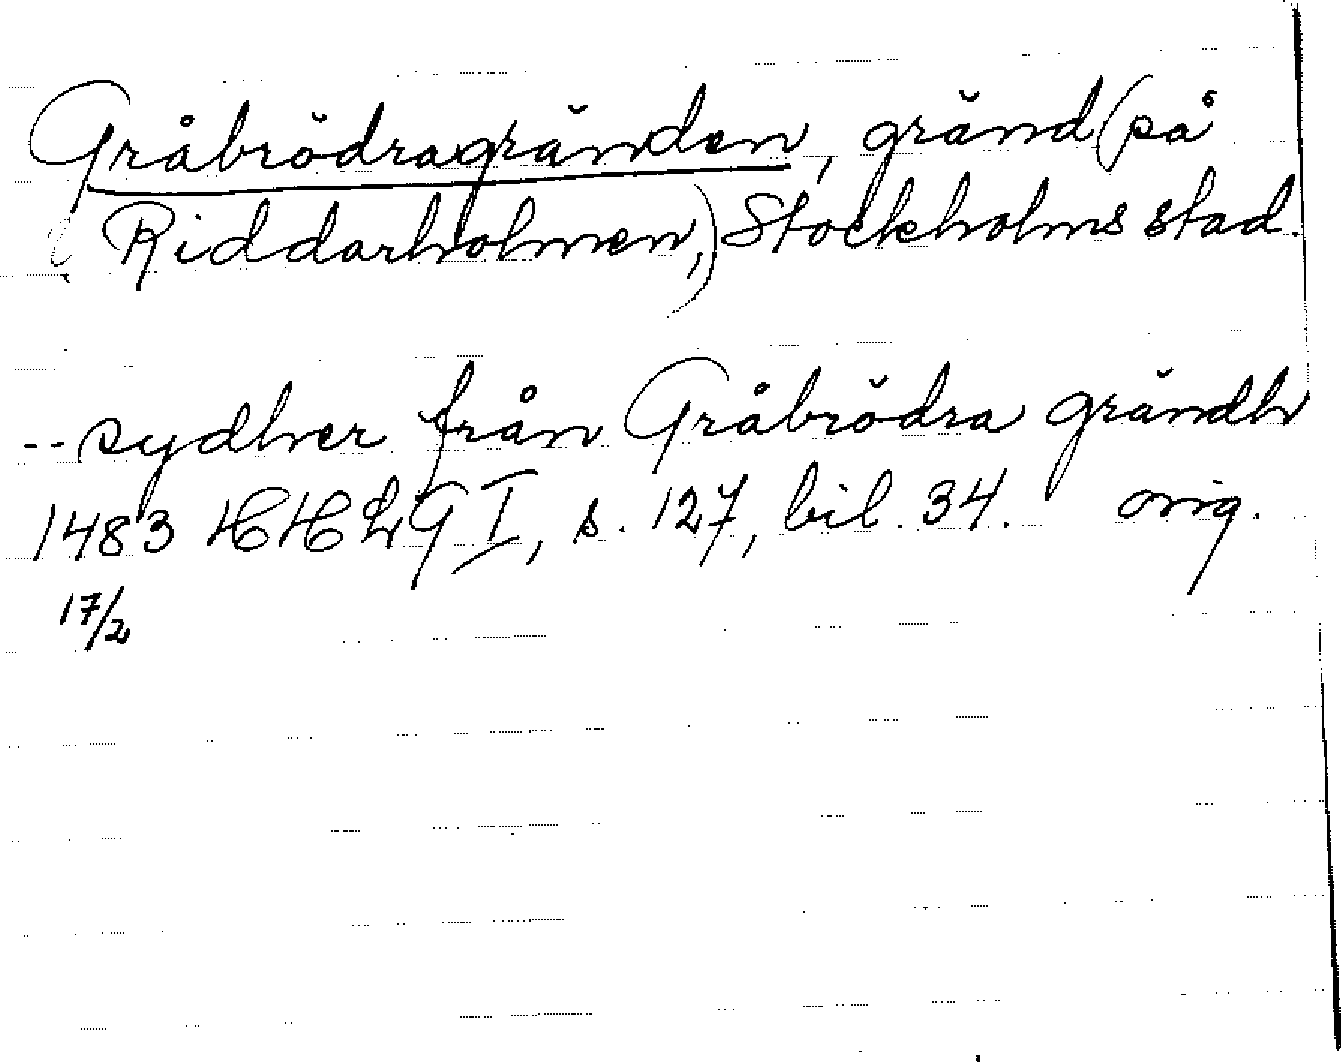 Gråbrödragränden, gränd (på
Riddarholmen,) Stockholms stad.
-- sydher från Gråbrödra grändh
1483 HHLG I, s. 127, bil. 34. orig.
17/2